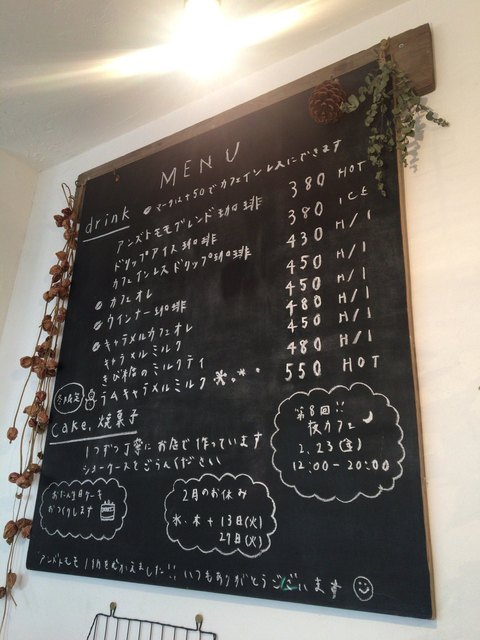 MENU
drink マークは+50でカフェインレスにできます
アンズトモモブレンド珈琲 380 HOT
ドリップアイス珈琲 380 ICE
カフェインレスドリップ珈琲 430 H/I
カフェオレ 450 H/I
ウインナー珈琲 450 H/I
キャラメルカフェオレ 480 H/I
キャラメルミルク 450 H/I
きび糖のミルクティ 480 H/I
冬限定 ラムキャラメルミルク 550 HOT
cake, 焼菓子
1つずつ丁寧にお店で作っています
ショーケースをごらんください
第8回!!
夜カフェ
2.23(金)
12:00-20:00
お誕生日ケーキ
おつくりします
2月のお休み
水・木+13日(火)
27日(火)
アンズトモモ 1才をむかえました!! いつもありがとうございます